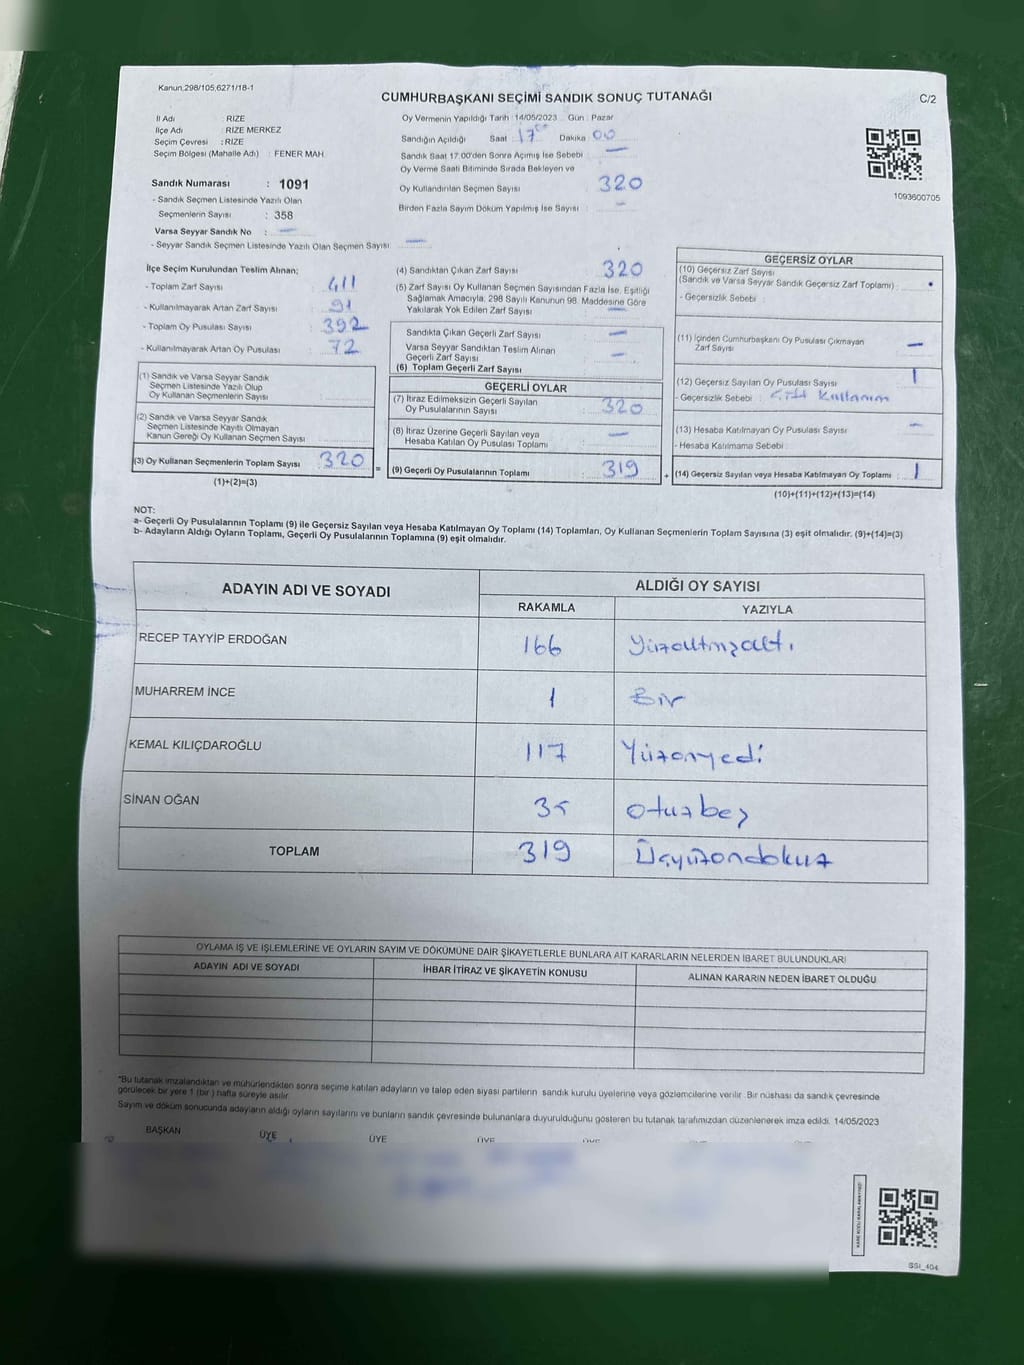 Kanun.298/105,6271/18-1
CUMHURBAŞKANI SEÇİMİ SANDIK SONUÇ TUTANAĞI
C/2
İl Adı : RİZE
İlçe Adı : RİZE MERKEZ
Seçim Çevresi : RİZE
Seçim Bölgesi (Mahalle Adı) : FENER MAH.
Sandık Numarası : 1091
- Sandık Seçmen Listesinde Yazılı Olan
Seçmenlerin Sayısı : 358
Varsa Seyyar Sandık No : —
- Seyyar Sandık Seçmen Listesinde Yazılı Olan Seçmen Sayısı —
Oy Vermenin Yapıldığı Tarih 14/05/2023 Gün : Pazar
Sandığın Açıldığı Saat 17 00 Dakika 00
Sandık Saat 17.00'den Sonra Açımış İse Sebebi —
Oy Verme Saati Bitiminde Sırada Bekleyen ve
Oy Kullandırılan Seçmen Sayısı 320
Birden Fazla Sayım Döküm Yapılmış İse Sayısı : —
1093600705
İlçe Seçim Kurulundan Teslim Alınan;
- Toplam Zarf Sayısı 411
- Kullanılmayarak Artan Zarf Sayısı 91
- Toplam Oy Pusulası Sayısı 392
- Kullanılmayarak Artan Oy Pusulası 72
(1) Sandık ve Varsa Seyyar Sandık
Seçmen Listesinde Yazılı Olup
Oy Kullanan Seçmenlerin Sayısı
(2) Sandık ve Varsa Seyyar Sandık
Seçmen Listesinde Kayıtlı Olmayan
Kanun Gereği Oy Kullanan Seçmen Sayısı
(3) Oy Kullanan Seçmenlerin Toplam Sayısı 320 =
(1)+(2)=(3)
(4) Sandıktan Çıkan Zarf Sayısı 320
(5) Zarf Sayısı Oy Kullanan Seçmen Sayısından Fazla İse, Eşitliği
Sağlamak Amacıyla; 298 Sayılı Kanunun 98. Maddesine Göre
Yakılarak Yok Edilen Zarf Sayısı —
Sandıkta Çıkan Geçerli Zarf Sayısı —
Varsa Seyyar Sandıktan Teslim Alınan
Geçerli Zarf Sayısı —
(6) Toplam Geçerli Zarf Sayısı
GEÇERLİ OYLAR
(7) İtiraz Edilmeksizin Geçerli Sayılan
Oy Pusulalarının Sayısı 320
(8) İtiraz Üzerine Geçerli Sayılan veya
Hesaba Katılan Oy Pusulası Toplamı —
(9) Geçerli Oy Pusulalarının Toplamı 319 +
GEÇERSİZ OYLAR
(10) Geçersiz Zarf Sayısı
(Sandık ve Varsa Seyyar Sandık Geçersiz Zarf Toplamı) :
- Geçersizlik Sebebi :
(11) İçinden Cumhurbaşkanı Oy Pusulası Çıkmayan
Zarf Sayısı —
(12) Geçersiz Sayılan Oy Pusulası Sayısı 1
- Geçersizlik Sebebi : Çift Kullanım
(13) Hesaba Katılmayan Oy Pusulası Sayısı —
- Hesaba Katılmama Sebebi
(14) Geçersiz Sayılan veya Hesaba Katılmayan Oy Toplamı : 1
(10)+(11)+(12)+(13)=(14)
NOT:
a- Geçerli Oy Pusulalarının Toplamı (9) ile Geçersiz Sayılan veya Hesaba Katılmayan Oy Toplamı (14) Toplamları, Oy Kullanan Seçmenlerin Toplam Sayısına (3) eşit olmalıdır. (9)+(14)=(3)
b- Adayların Aldığı Oyların Toplamı, Geçerli Oy Pusulalarının Toplamına (9) eşit olmalıdır.
ADAYIN ADI VE SOYADI ALDIĞI OY SAYISI
RAKAMLA YAZIYLA
RECEP TAYYİP ERDOĞAN 166 Yüzaltmışaltı
MUHARREM İNCE 1 Bir
KEMAL KILIÇDAROĞLU 117 Yüzonyedi
SİNAN OĞAN 35 Otuzbeş
TOPLAM 319 Üçyüzondokuz
OYLAMA İŞ VE İŞLEMLERİNE VE OYLARIN SAYIM VE DÖKÜMÜNE DAİR ŞİKAYETLERLE BUNLARA AİT KARARLARIN NELERDEN İBARET BULUNDUKLARI
ADAYIN ADI VE SOYADI İHBAR İTİRAZ VE ŞİKAYETİN KONUSU ALINAN KARARIN NEDEN İBARET OLDUĞU
*Bu tutanak imzalandıktan ve mühürlendikten sonra seçime katılan adayların ve talep eden siyasi partilerin sandık kurulu üyelerine veya gözlemcilerine verilir. Bir nüshası da sandık çevresinde
görülecek bir yere 1 (bir) hafta süreyle asılır.
Sayım ve döküm sonucunda adayların aldığı oyların sayılarını ve bunların sandık çevresinde bulunanlara duyurulduğunu gösteren bu tutanak tarafımızdan düzenlenerek imza edildi. 14/05/2023
BAŞKAN ÜYE ÜYE ÜYE
KARE KODU KARALAMAYINIZ!
SSI_404